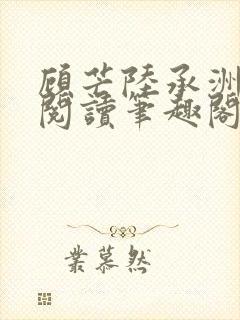 顧芒陸承洲
閱讀筆趣閣
葉慕然